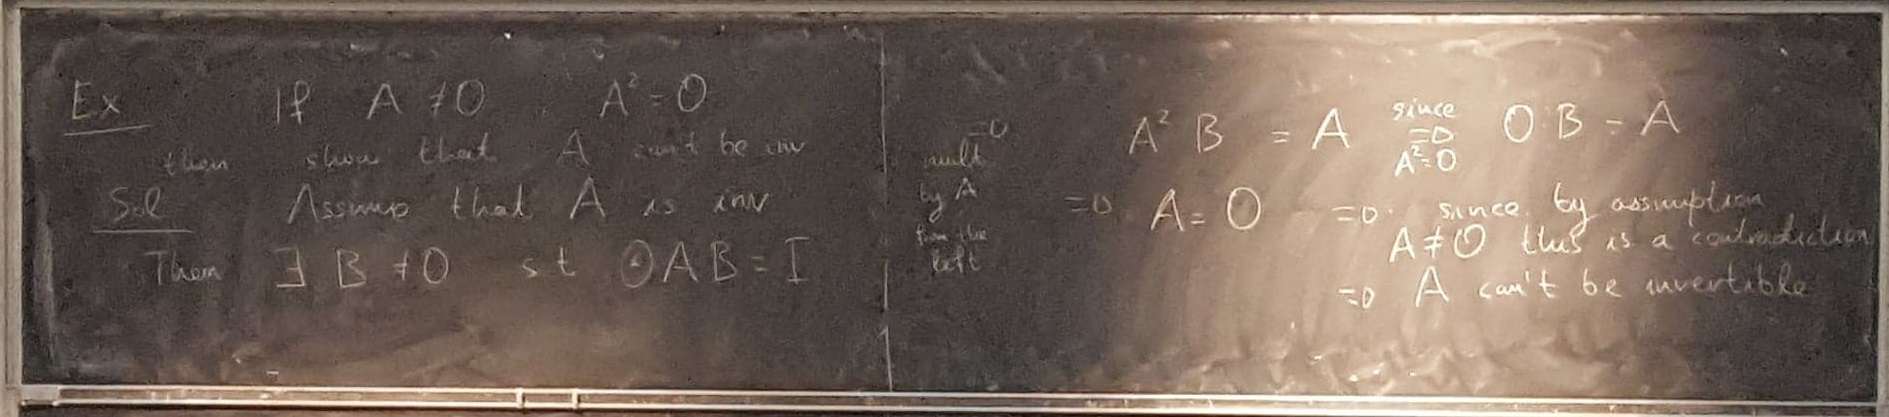 Ex If A ≠ O, A² = O
then show that A can't be inv
Sol Assume that A is inv
Then ∃ B ≠ O st AB = I
⇒ mult by A from the left
A² B = A since A² = O ⇒ O·B = A
⇒ A = O ⇒ since by assumption
A ≠ O this is a contradiction
⇒ A can't be invertible